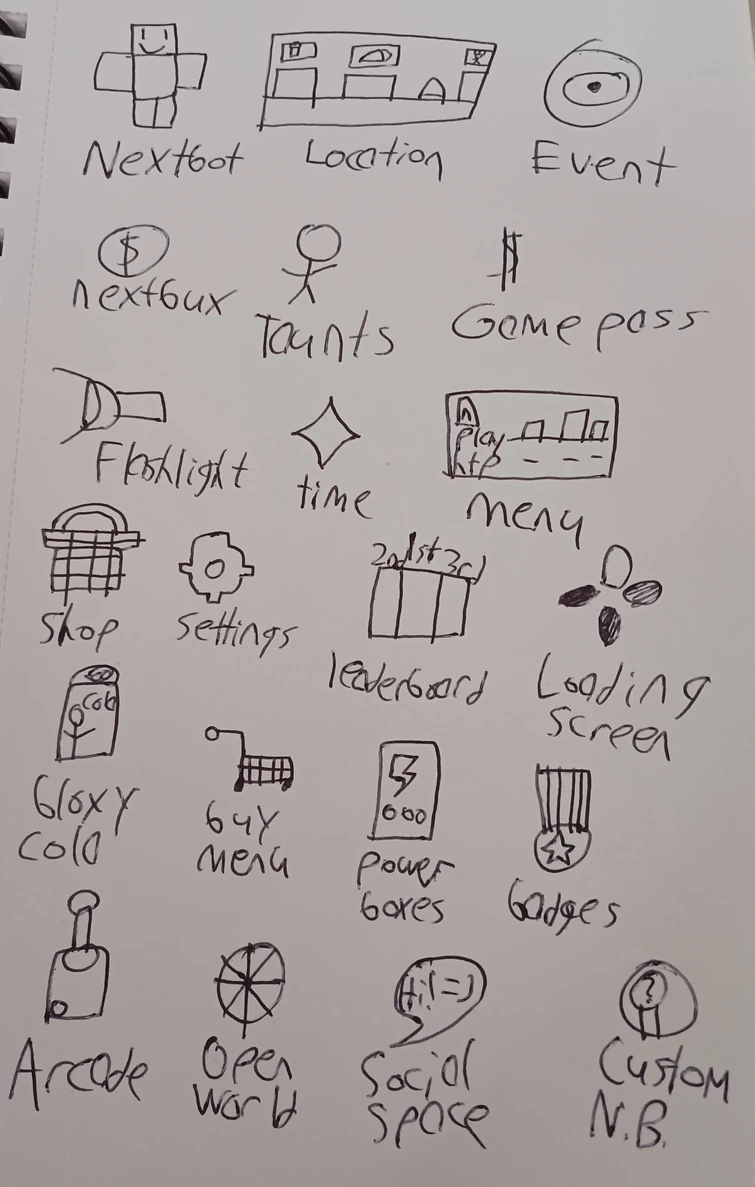 Nextbot Location Event
$
$
nextbux Taunts Gamepass
play
htp
Flashlight time menu
2nd 1st 3rd
Shop settings leaderboard Loading
screen
cola
bloxy
cola
buy
menu
power
boxes
badges
Hi! =)
?
Arcade Open
world
Social
space
Custom
N.B.